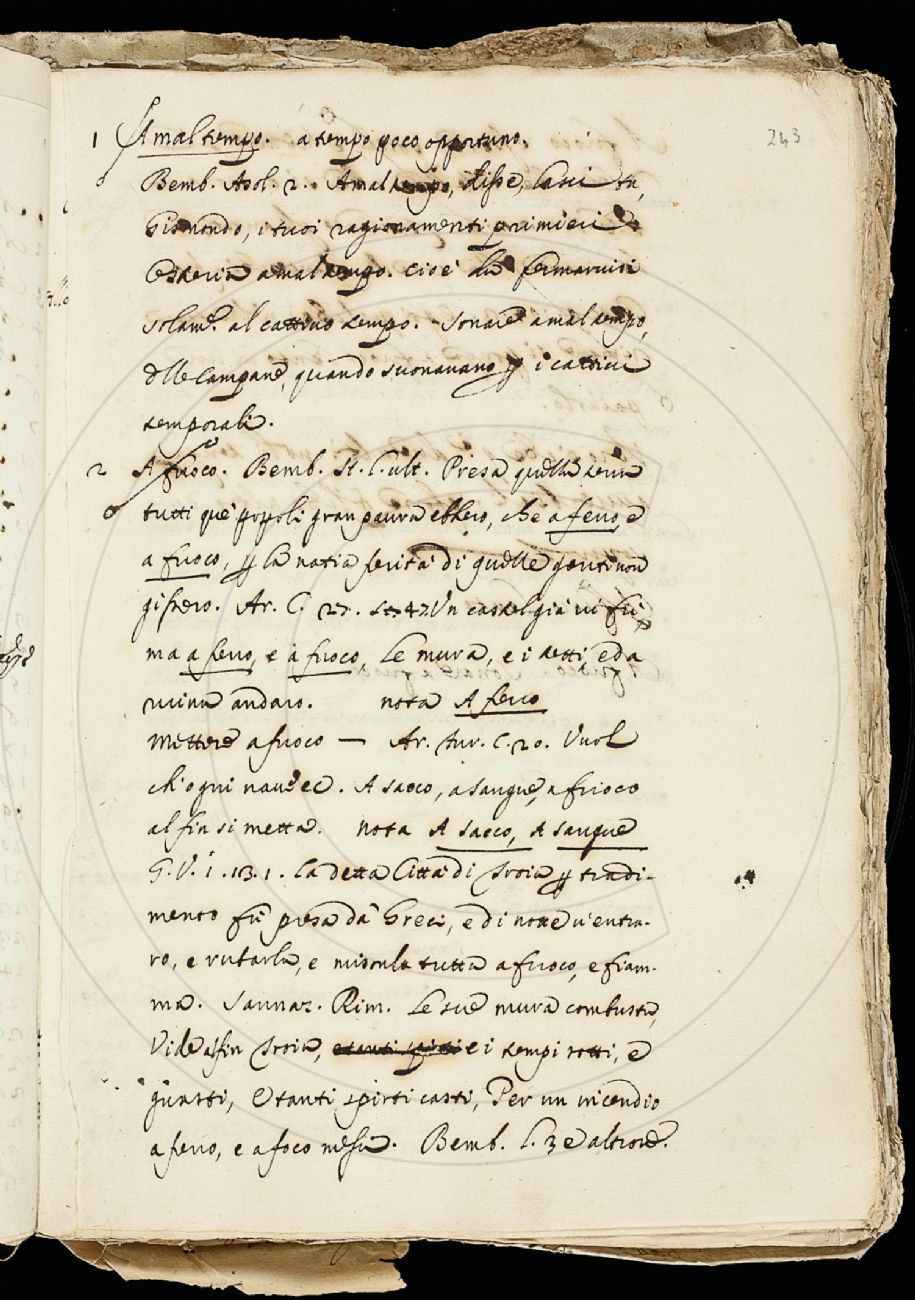 243
1 A mal tempo. a tempo poco opportuno.
Bemb. Asol. 2. A mal tempo, disse, lasci tu,
Gismondo, i tuoi ragionamenti primieri
a mal tempo. cioè fermarvisi
solam.te al cattivo tempo. Sonare a mal tempo,
delle Campane, quando suonavano ꝑ i cattivi
temporali.
2 A fuoco. Bemb. St. l. ult. Presa quella terra
tutti que' popoli gran paura ebbero, che a ferro, e
a fuoco, ꝑ la natia ferità di quelle genti non
gissero. Ar. C. 27. st. 47 Un castel già vi fu,
ma a ferro, e a fuoco, Le mura, e i tetti, ed a
ruina andaro. nota A ferro
Mettere a fuoco — Ar. fur. C. 20. Vuol
ch'ogni nave e. A sacco, a sangue, a fuoco
al fin si metta. nota A sacco, A sangue
G. V. 1. 13. 1. La detta Città di Troia ꝑ tradi-
mento fu presa da' Greci, e di notte v'entra-
ro, e rubarla, e misonla tutta a fuoco, e fiam-
ma. Sannaz. Rim. Le sue mura combusta,
Vide alfin Troia, e i tempi rotti, e
guasti, E tanti spirti casti, Per un incendio
a ferro, e a foco messi. Bemb. l. 3 e altrove.